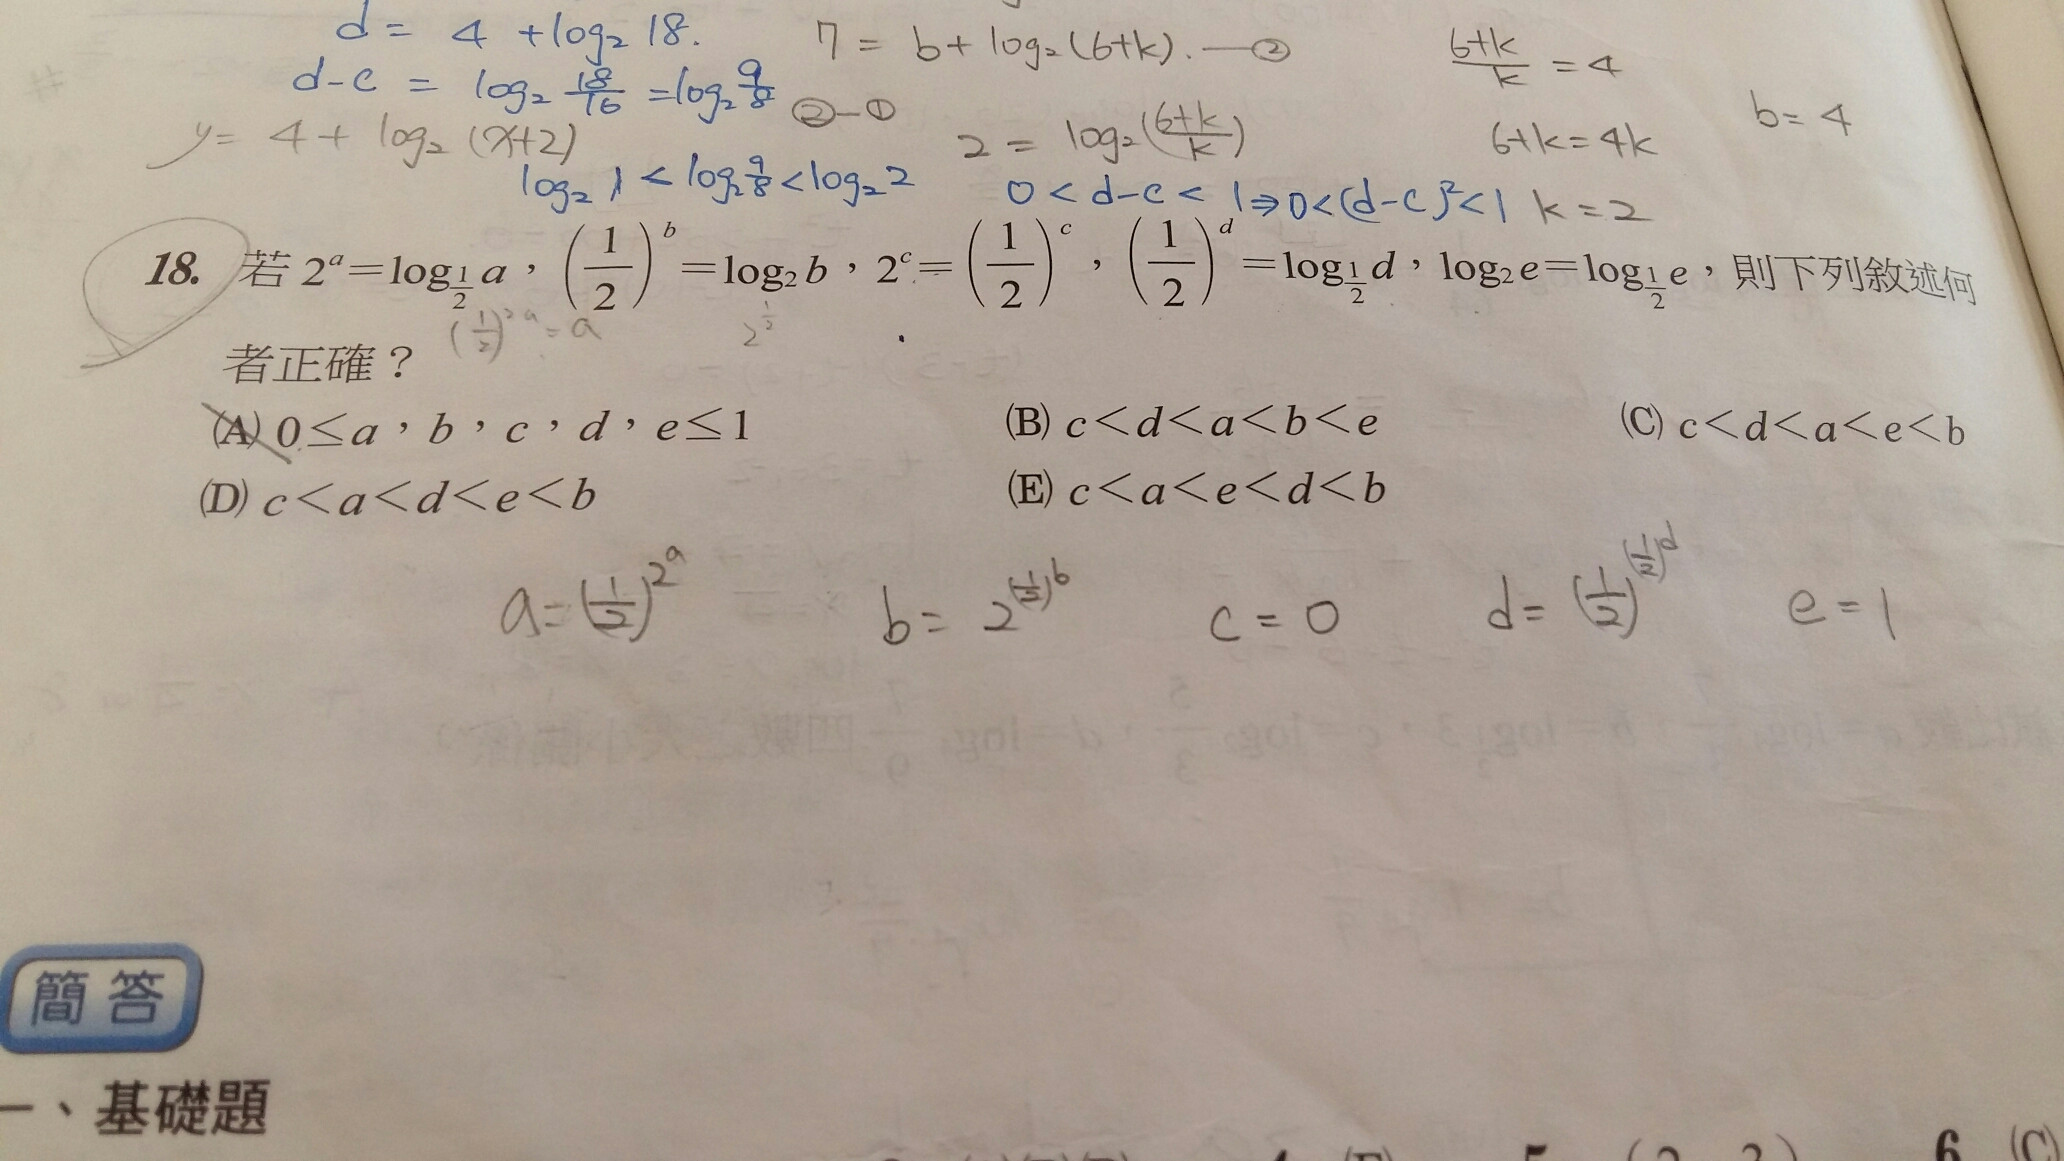 d = 4 + log₂ 18.
7 = b + log₂(6+k). —②
(6+k)/k = 4
d−c = log₂ 18/16 = log₂ 9/8
②−①
b = 4
y = 4 + log₂ (x+2)
2 = log₂((6+k)/k)
6+k = 4k
log₂ 1 < log₂ 9/8 < log₂ 2
0 < d−c < 1 ⇒ 0 < (d−c)² < 1
k = 2
18. 若 2ᵃ=log_{1/2} a,(1/2)ᵇ=log₂ b,2ᶜ=(1/2)ᶜ,(1/2)ᵈ=log_{1/2} d,log₂ e=log_{1/2} e,則下列敘述何
者正確?
(A) 0≤a,b,c,d,e≤1
(B) c<d<a<b<e
(C) c<d<a<e<b
(D) c<a<d<e<b
(E) c<a<e<d<b
a = (1/2)^{2^a}
b = 2^{(1/2)^b}
c = 0
d = (1/2)^{(1/2)^d}
e = 1
簡答
一、基礎題